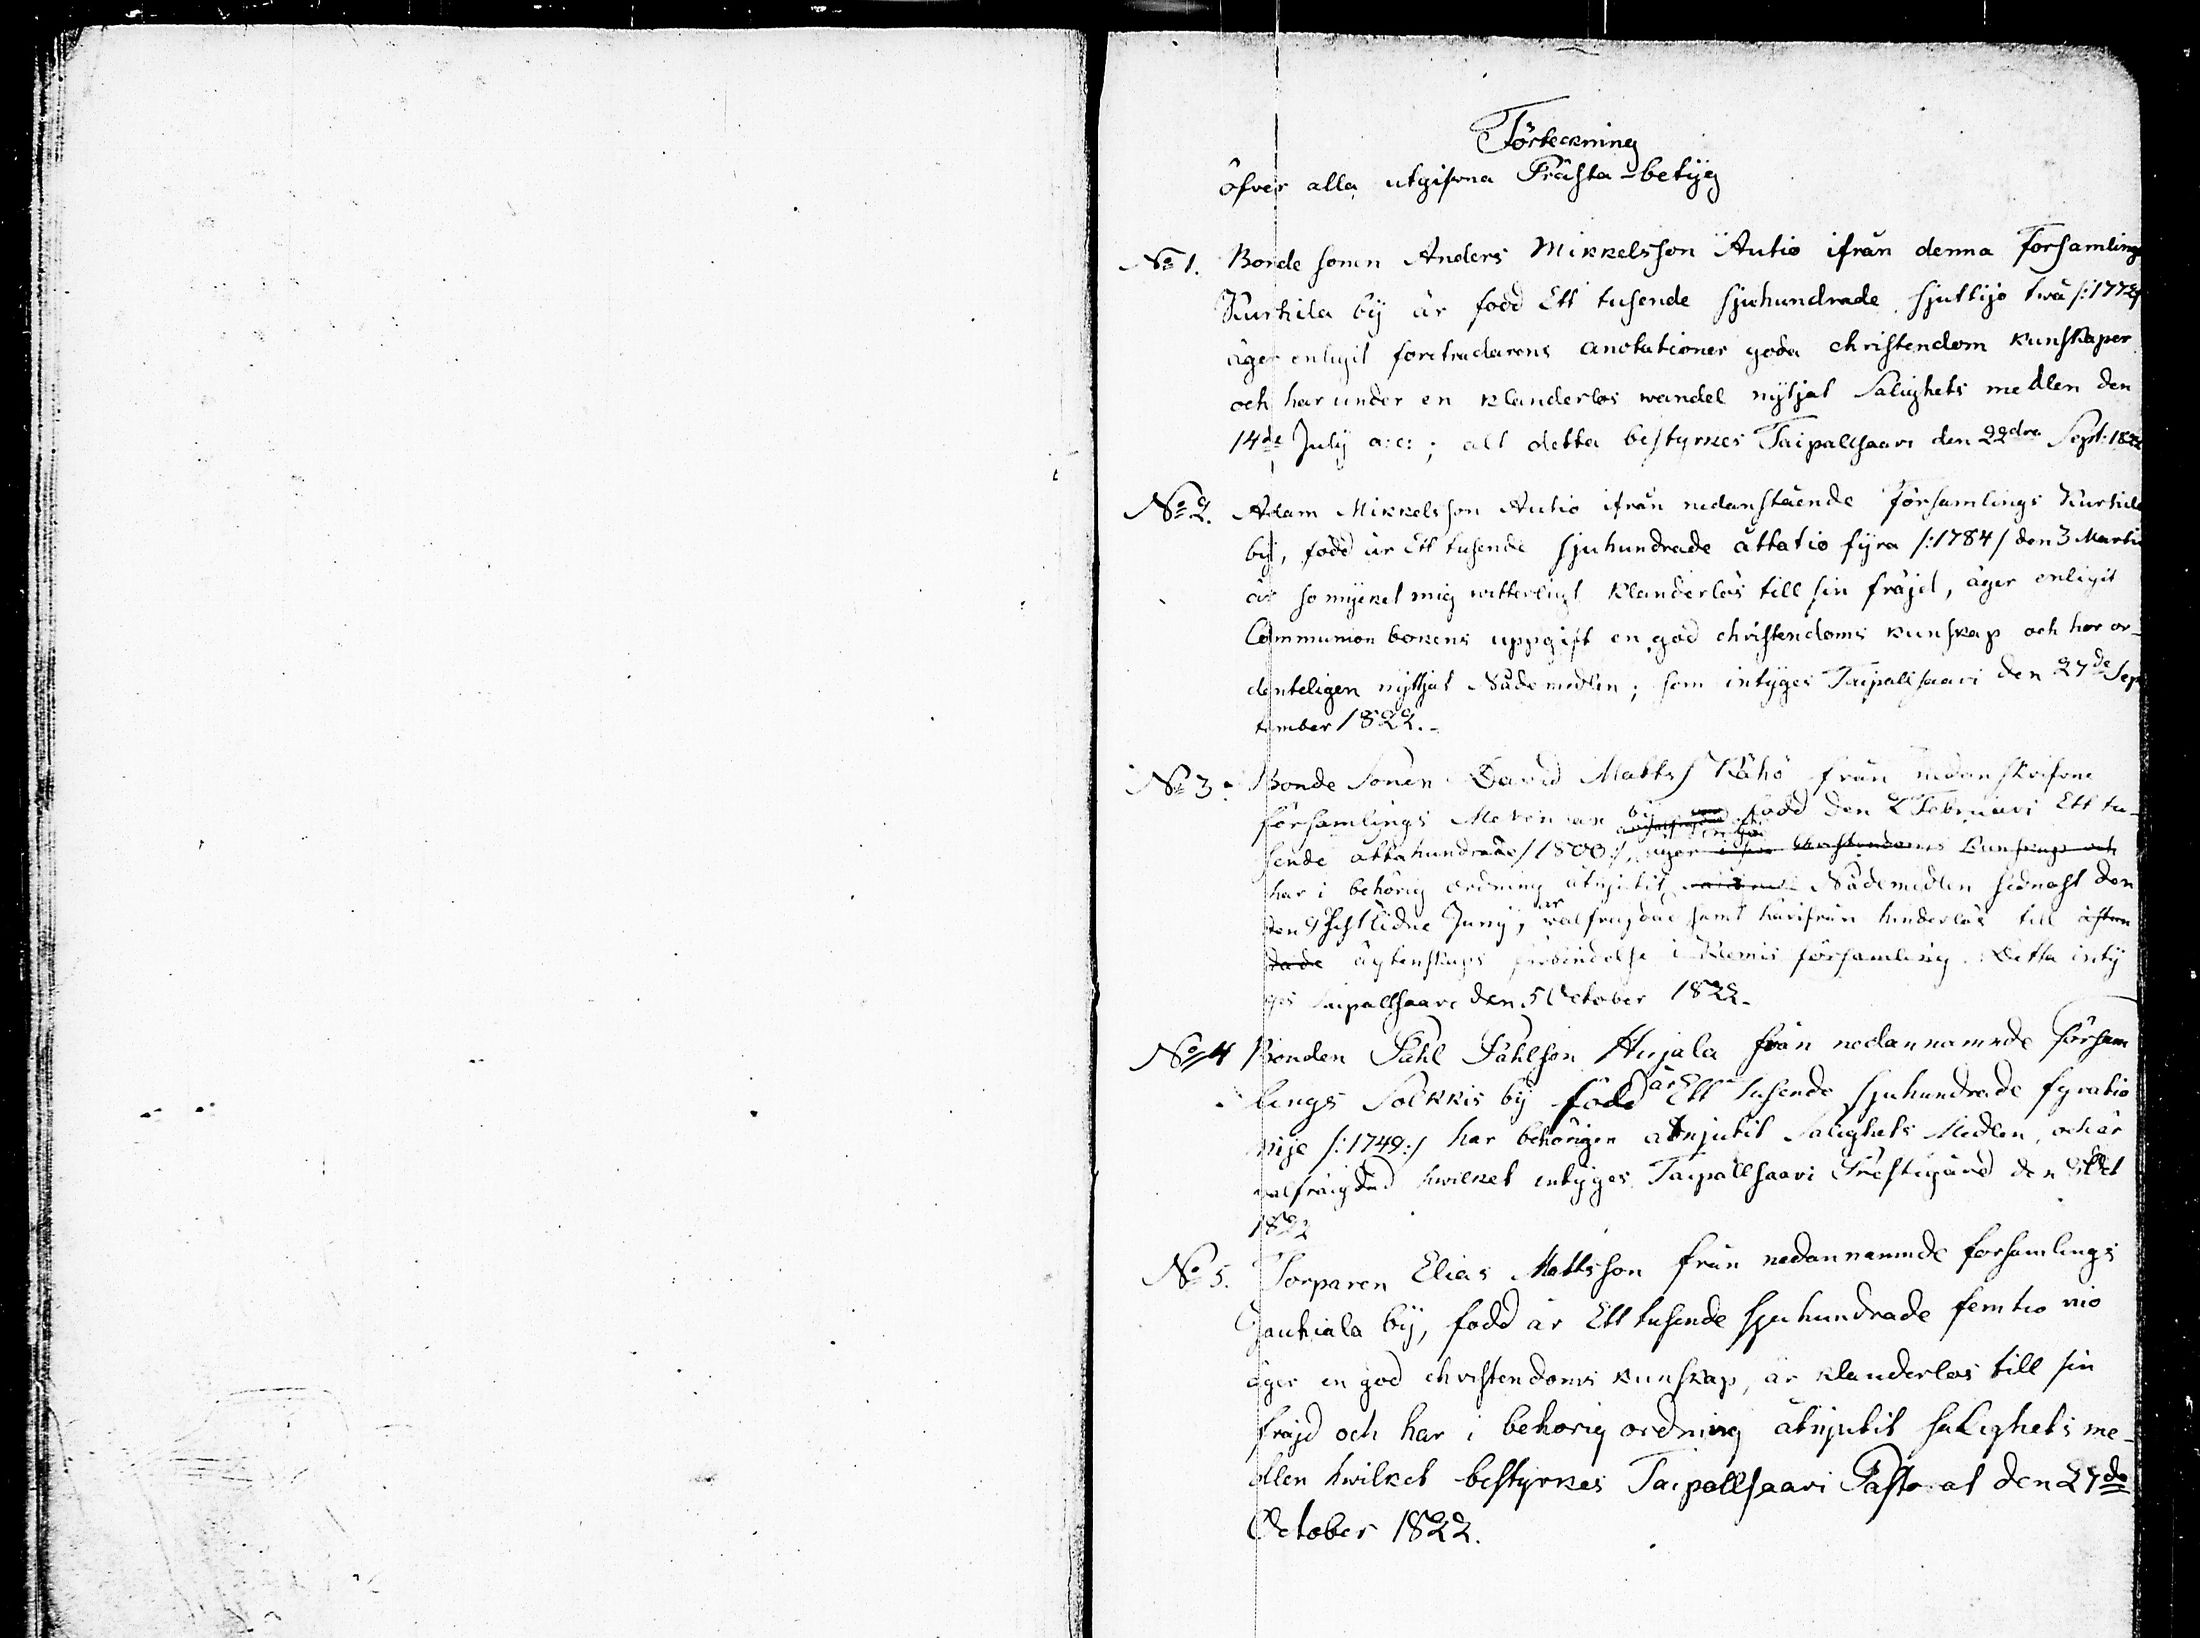 Förteckning
öfver alla utgifvna Prästa-betÿg
No 1. Bonde sonen Anders Mikkelsson Autio ifrån denna Församlings
Kurhila bÿ är född Ett tusende sjuhundrade sjuttijo twå /:1772:/
äger enligit företrädarens anotationer goda christendom kunskaper
och har under en klanderlös wandel nÿtjat Salighets medlen den
14de Julÿ a:c: ; alt detta bestyrkes Taipallsaari den 22dra Sept: 1822
No 2. Adam Mikkelsson Autio ifrån nedanstående Församlings Kurhila
bÿ, född år Ett tusende sjuhundrade åttatio fÿra /:1784/ den 3 Martii
är so mÿcket mig witterligt klanderlös till sin fräjd, äger enligit
Communion bokens uppgift en god christendoms kunskap och har or-
denteligen nÿttjat Nådemedlen; som intÿges Taipallsaari den 27de Sep
tember 1822.-
No 3. Bonde Sonen David Matts/ Kähö från nedanskrifvne
församlings Merenman bÿ född den 2 Februari Ett tu-
sende åttahundrade /1800:/, äger christendoms Kunskap och
har i behörig ordning åtnjutit Nådemedlen sednast den
den 9 sistlidne Junÿ, är välfrejdad samt härifrån hinderlös till
dade ägtenskaps förbindelse i Nemis församling. Detta intÿ
ges Taipallsaari den 5 October 1822.
No 4 Bonden Påhl Påhlson Hujala från nedannamnde försam
lings Solkkis bÿ född år Ett tusende sjuhundrade fyratio
nije /:1749:/ har behörigen åtnjutit Salighets Medlen, och är
välfräigdad hwilket intÿges Taipallsaari Prestegård den
1822
No 5. Torparen Elias Mattsson från nedannamnde församlings
Jauhiala bÿ, född år Ett tusende sjuhundrade femtio nio
äger en god christendoms kunskap, är klanderlös till sin
fräjd och har i behörig ordning åtnjutit salighets me-
dlen hwilket bestÿrkes Taipallsaari Pastorat den 27de
October 1822.